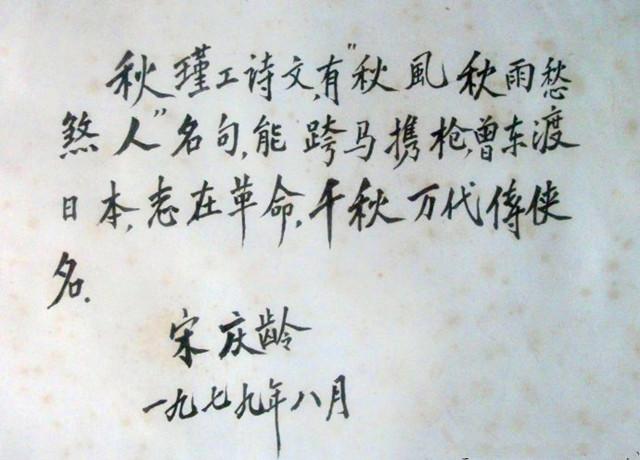 秋瑾工诗文,有"秋風秋雨愁
煞人"名句,能跨马携枪,曾东渡
日本,志在革命,千秋万代傳侠
名.
宋庆龄
一九七九年八月